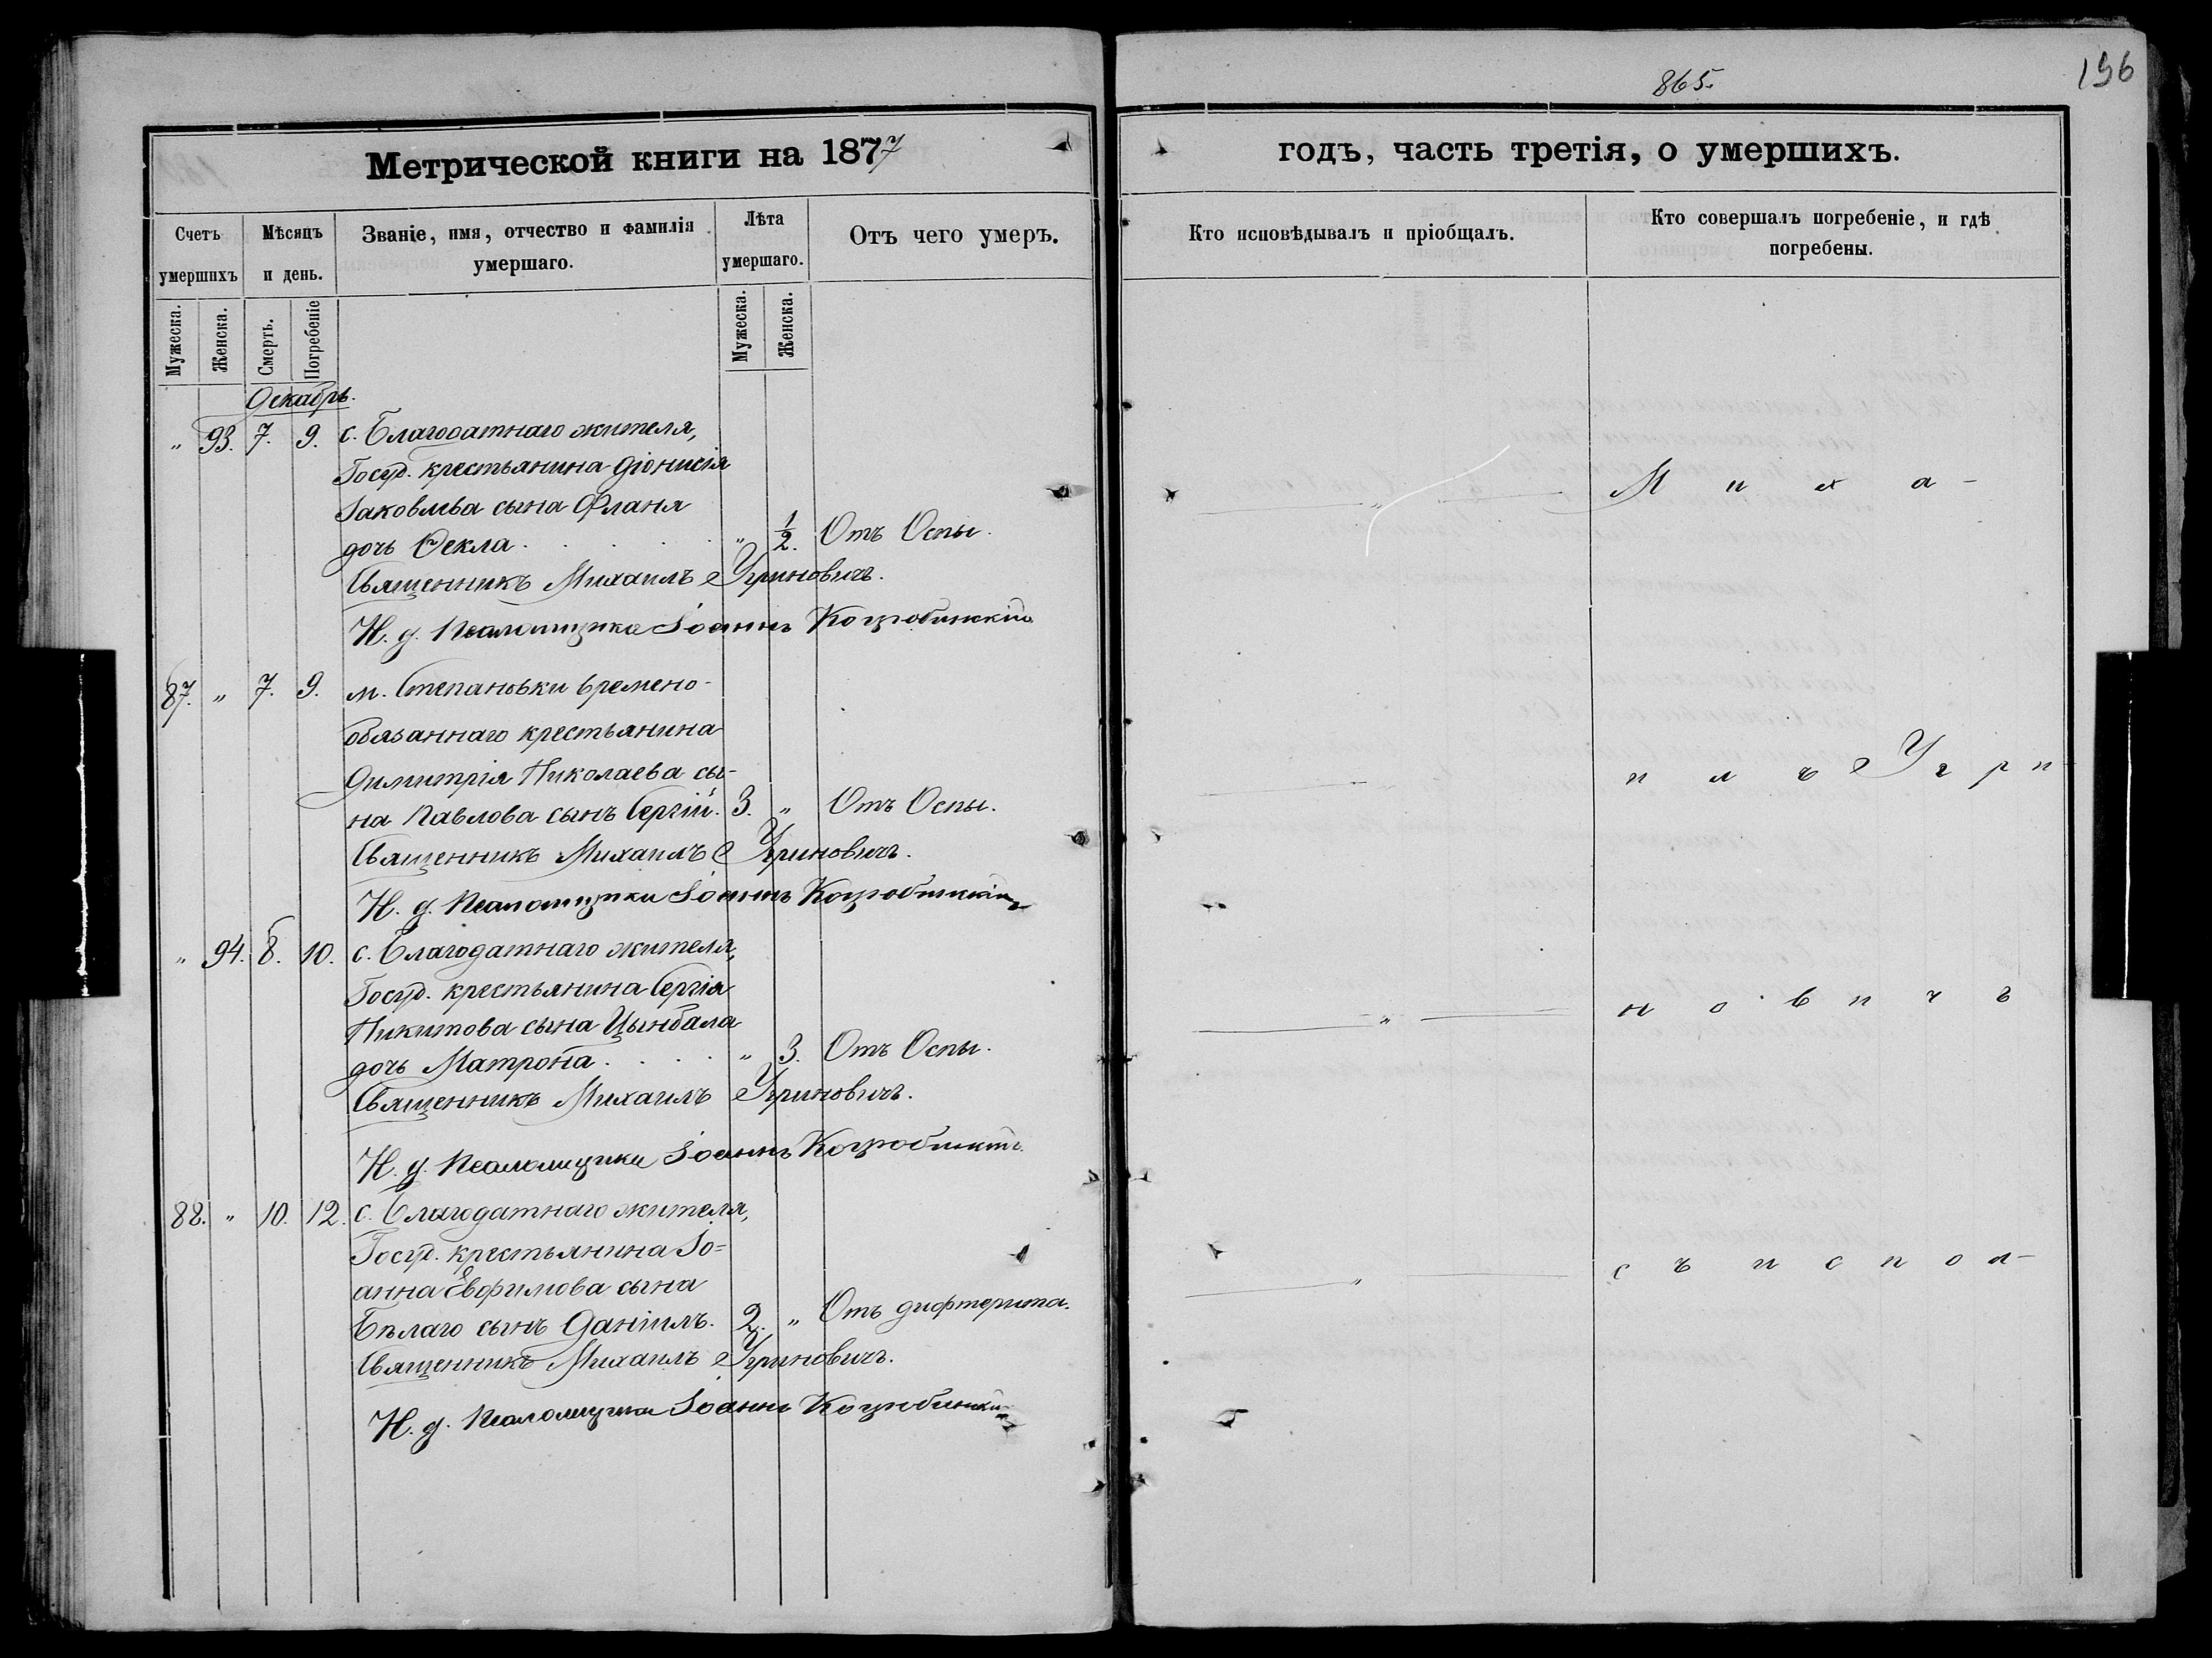 865.
196
Метрической книги на 1877
годъ, часть третія, о умершихъ.
Счетъ умершихъ
Мѣсяцъ и день.
Званіе, имя, отчество и фамилія умершаго.
Лѣта умершаго.
Отъ чего умеръ.
Кто исповѣдывалъ и пріобщалъ.
Кто совершалъ погребеніе, и гдѣ погребены.
Мужеска. Женска. Смерть. Погребеніе Мужеска. Женска.
Декабрь.
" 93. 7. 9. с. Благодатнаго жителя,
Госуд. крестьянина Діонисія
Іаковлева сына Фланя
дочь Ѳекла. . . . . " 1/2. Отъ Оспы.
Священникъ Михаилъ Угриновичъ.
И. д. Псаломщика Іоаннъ
Миха-
87. " 7. 9. м. Степановки времено-
обязаннаго крестьянина
Димитрія Николаева сы-
на Павлова сынъ Сергій. 3. " Отъ Оспы.
Священникъ Михаилъ Угриновичъ.
И. д. Псаломщика Іоаннъ
илъ Угри-
" 94. 8. 10. с. Благодатнаго жителя,
Госуд. крестьянина Сергія
Никитова сына Цынбала
дочь Матрона. . . . . " 3. Отъ Оспы.
Священникъ Михаилъ Угриновичъ.
И. д. Псаломщика Іоаннъ
"
новичъ
88. " 10. 12. с. Благодатнаго жителя,
Госуд. крестьянина Іо=
анна Евфимова сына
Бѣлаго сынъ Даніилъ. 2. " Отъ дифтерита.
Священникъ Михаилъ Угриновичъ.
И. д. Псаломщика Іоаннъ
"
съ испол-